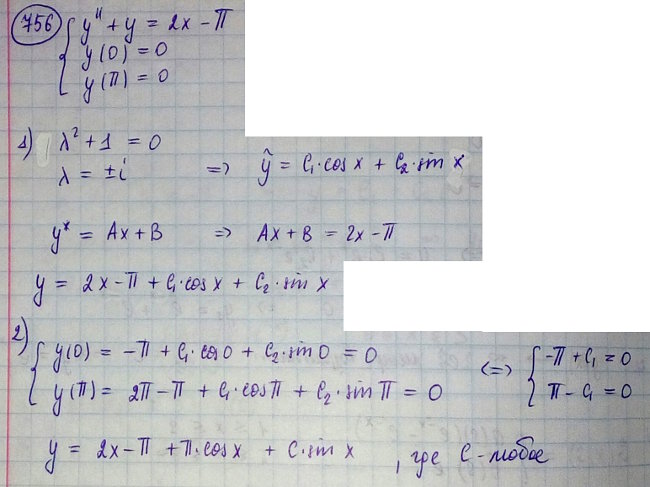 756
y'' + y = 2x - π
y(0) = 0
y(π) = 0
1) λ² + 1 = 0
λ = ±i => ỹ = C₁·cos x + C₂·sin x
y* = Ax + B => Ax + B = 2x - π
y = 2x - π + C₁·cos x + C₂·sin x
2)
y(0) = -π + C₁·cos 0 + C₂·sin 0 = 0 <=> -π + C₁ = 0
y(π) = 2π - π + C₁·cos π + C₂·sin π = 0 π - C₁ = 0
y = 2x - π + π·cos x + C·sin x , где C - любое